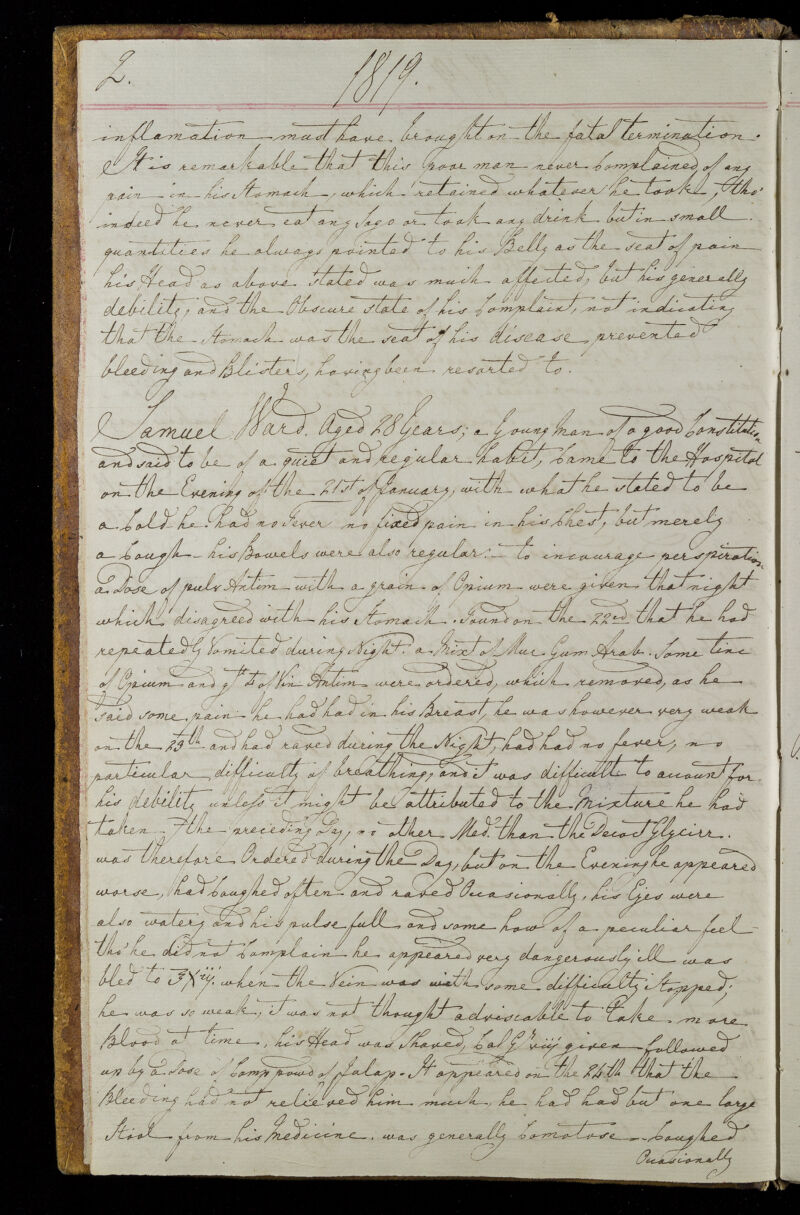 2.
1819.
inflamation must have brought on the fatal termination.
It is remarkable that this poor man never Complained of any
pain in his Stomach, which retained whatever he took, tho'
indeed he never eat any Sago or took any drink but in small
quantities he always pointed to his Belly as the seat of pain
his Head as above stated was much affected, but his generally
debility, and the Obscure state of his Complaint, not indicating
that the Stomach was the seat of his disease prevented
bleeding and Blisters, having been resorted to.
Samuel Ward. Aged 28 Years; a Young Man of a good Constitution
and said to be of a quiet and regular habit, Came to the Hospital
on the Evening of the 21st of January, with what he stated to be
a Cold he had no Fever no fixed pain in his Chest, but merely
a Cough his Bowels were also regular:- to incourage perspiration
a Dose of pulv Antim with a grain of Opium were given that night
which disagreed with his Stomach. Found on the 22nd that he had
repeatedly Vomited during Night. a Mixt of Muc Gum Arab. Some tinc
of Opium and of Vin Antim were ordered, which removed, as he
said some pain he had had in his Breast, he was however very weak
on the 23th and had raved during the Night, had had no fever, no
particular difficulty of breathing, and it was difficult to account for
his debility unless it might be attributed to the Mixture he had
taken the preceding Day, no other Med. than the Decoct Glycirr.
was therefore Ordered during the Day, but on the Evening he appeared
worse, had Coughed often and raved Occasionally, his Eyes were
also watery and his pulse full and some how of a peculiar feel
tho' he did not Complain he appeared very dangerously ill was
bled to ℥xij. when the Vein was with some difficulty Stopped;
he was so weak, it was not thought adviscable to take more
Blood at time, his Head was Shaved, Cal Gr viij given followed
up by a Dose of Comp powd of Jalap. It appeared on the 24th that the
Bleeding had not relieved him much he had had but one large
Stool from his Medicine. was generally Comotose Coughed
Occasionally